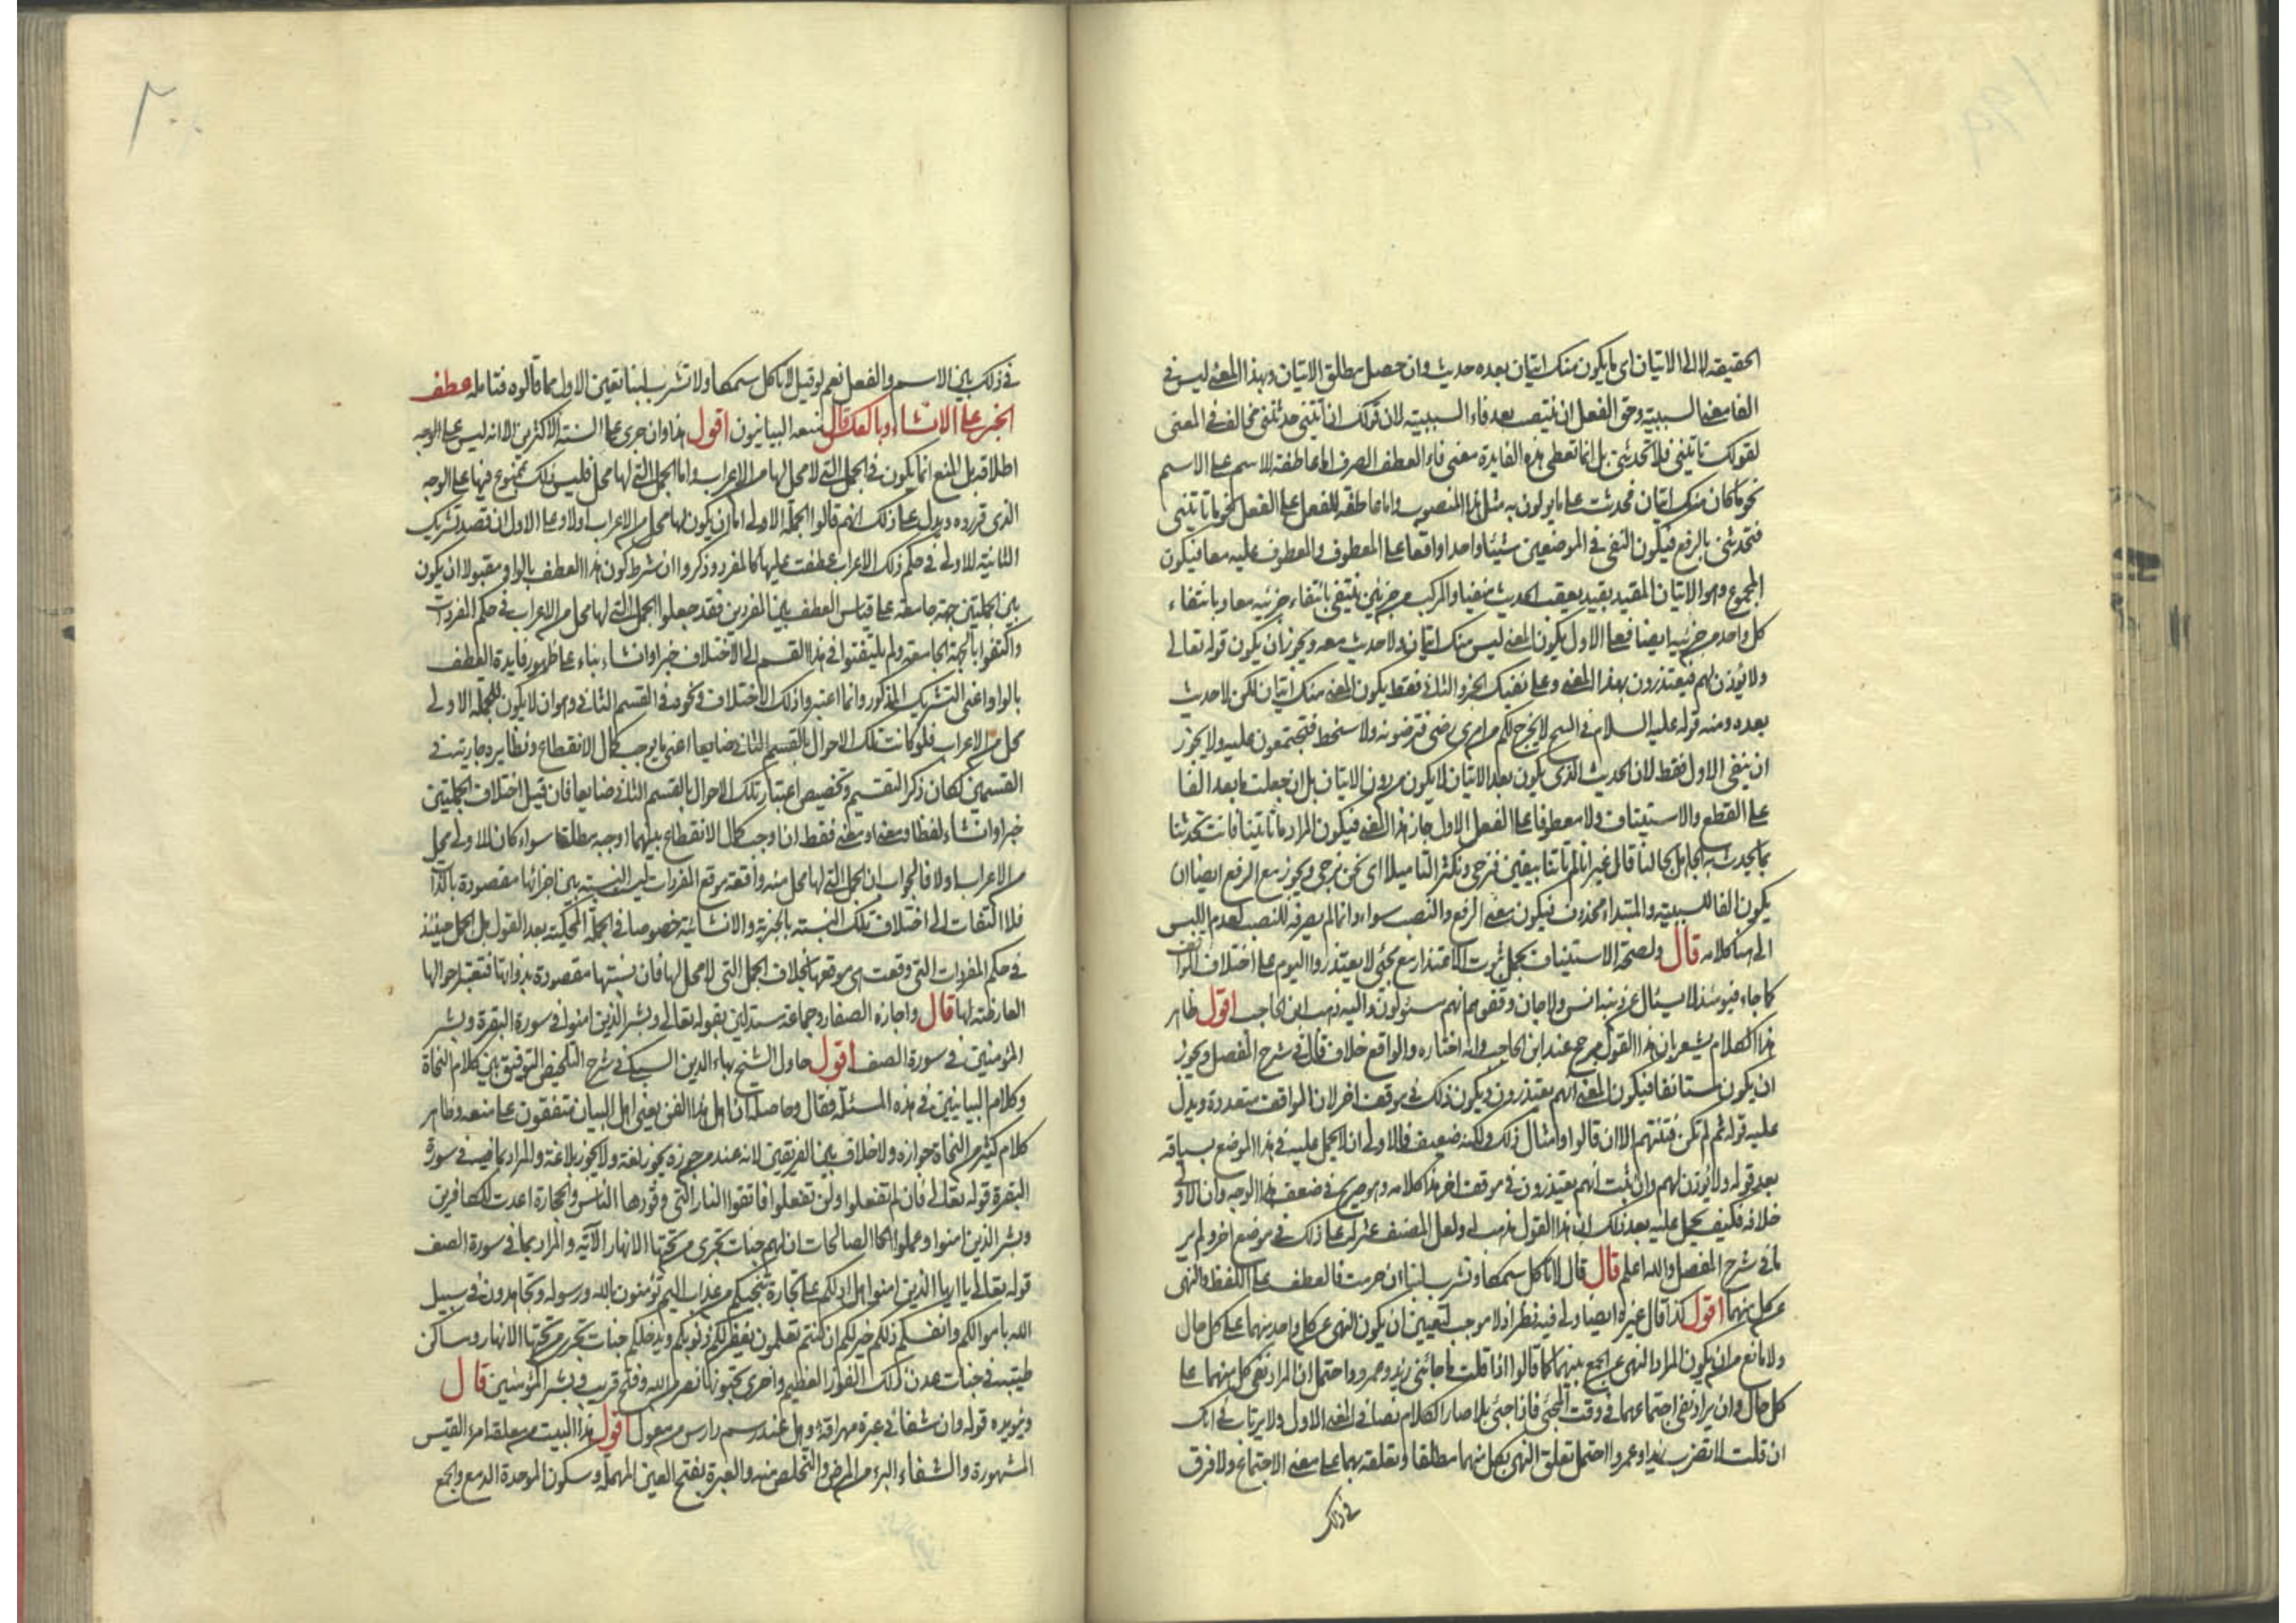 الحقيقة لا الى الاتيان اى ما يكون منك اتيان بعده حديث وان حصل مطلق الاتيان وبهذا المعنى ليس فى
الفا معنى السببية وحق الفعل ان ينتصب بعد فاء السببية لان قولك ان تأتينى حدثتنى مخالف فى المعنى
لقولك تأتينى فلا تحدثنى بل انما تعطى هذه الفايدة معنى فاء العطف الصرف اما عاطفة الاسم على الاسم
نحو ما كان منك اتيان فحديث على ما يولون به مثل هذا المنصوب واما عاطفة للفعل على الفعل نحو ما تأتينى
فتحدثنى بالرفع فيكون النفى فى الموضعين شيئا واحدا واقعا على المعطوف والمعطوف عليه معا فيكون
المجموع وهو الاتيان المقيد بقيد يعقب الحديث منفيا والمركب من جزئين ينتفى بانتفاء جزئيه معا وبانتفاء
كل واحد من جزئيه ايضا فعلى الاول يكون المعنى ليس منك اتيان ولا حديث معه ويجوز ان يكون قوله تعالى
ولا يؤذن لهم فيعتذرون بهذا المعنى وعلى نفيك الجزو الثانى فقط يكون المعنى منك اتيان لكن لا حديث
بعده ومنه قوله عليه السلام فى لا يخرج لكم من امرى رضى فترضونه ولا سخط فتجتمعون عليه ولا يجوز
ان ينفى الاول فقط لان الحديث الذى يكون بعد الاتيان لا يكون بدون الاتيان بل ان جعلت ما بعد الفا
على القطع والاستيناف ولا معطوفا على الفعل الاول جاز هذا المعنى فيكون المراد ما تأتينا فانت تحدثنا
بما يحدث به الجاهل بحالنا قال غير انا لم تأتنا بيقين فنرجى ونكثر التأميلا اى نحن نرجى ويجوز مع الرفع ايضا ان
يكون الفا للسببية والمبتداء محذوف فيكون معنى الرفع والنصب سواء وانما لم يصرف للنصب لعدم اللبس
الى هنا كلامه قال ولصحة الاستيناف يحمل ثبوت الاعتذار مع مجئ لا يعتذروا اليوم على اختلاف المواقف
كما جاء فيومئذ لا يسئال عن ذنبه انس ولا جان وقفوهم انهم مسئولون واليه ذهب ابن الحاجب اقول ظاهر
هذا الكلام يشعر بان هذا القول مرجح عند ابن الحاجب وانه اختاره والواقع خلاف قال فى شرح المفصل ويجوز
ان يكون مستانفا فيكون المعنى انهم يعتذرون ويكون ذلك فى موقف اخر لان المواقف متعددة ويدل
عليه قوله ثم لم تكن فتنتهم الا ان قالوا وامثال ذلك ولكنه ضعيف فالاولى ان لا يحمل عليه فى هذا الموضع بسياقه
بعد قوله ولا يؤذن لهم وان ثبت انهم يعتذرون فى موقف اخر هذا كلامه وهو صريح فى ضعف هذا الوجه وان الاولى
خلافه فكيف يحمل عليه بعد ذلك ان هذا القول مذهب له ولعل المصنف عثر له على ذلك فى موضع اخر ولم ير
ما فى شرح المفصل والله اعلم قال قال لا تاكل سمكا وتشرب لبنا ان جزمت فالعطف على اللفظ والنهى
عن كل منهما اقول كذا قال غيره ايضا ولى فيه نظر اذ لا موجب لتعيين ان يكون النهى عن كل واحد منهما على كل حال
ولا مانع من ان يكون المراد النهى عن الجمع بينهما كما قالوا اذا قلت ما جائنى زيد وعمرو واحتمل ان المراد نفى كل منهما على
كل حال وان يراد نفى اجتماعهما فى وقت المجئ فاذا جئ بلا صار الكلام نصا فى المعنى الاول ولا يرتاب فى انك
ان قلت لا تضرب زيدا وعمروا احتمل تعلق النهى بكل منهما مطلقا وتعلقه بهما على معنى الاجتماع ولا فرق
فى ذلك
٢٠٠
فى ذلك بين الاسم والفعل نعم لو قيل لا تاكل سمكا ولا تشرب لبنا تعين الاول مما قالوه فتامله عطف
الخبر على الانشاء وبالعكس قال منعه البيانيون اقول هذا وان جرى على السنة الاكثرين الا انه ليس على الوجه
اطلاقه بل المنع انما يكون فى الجمل التى لا محل لها من الاعراب واما الجمل التى لها محل فليس ذلك بممنوع فيها على الوجه
الذى قرروه ويدل على ذلك انهم قالوا الجملة الاولى اما ان يكون لها محل من الاعراب اولا وعلى الاول ان قصد تشريك
الثانية للاولى فى حكم ذلك الاعراب عطفت عليها كالمفرد وذكروا ان شرط كون هذا العطف بالواو مقبولا ان يكون
بين الجملتين جهة جامعة على قياس العطف بين المفردين فقد جعلوا الجمل التى لها محل من الاعراب فى حكم المفردات
واكتفوا بالجهة الجامعة ولم يلتفتوا فى هذا القسم الى الاختلاف خبرا وانشاء بناء على ظهور فايدة العطف
بالواو اعنى التشريك المذكور وانما اعتبروا ذلك الاختلاف ونحوه فى القسم الثانى وهو ان لا يكون للجملة الاولى
محل من الاعراب فلو كانت تلك الاحوال بالقسم الثانى ضايعا اعنى ما يوجب كمال الانقطاع ونظايره جارية فى
القسمين لكان ذكر التقسيم وتخصيص اعتبار تلك الاحوال بالقسم الثانى ضايعا فان قيل اختلاف الجملتين
خبرا وانشاء لفظا ومعنى او معنى فقط ان اوجب كمال الانقطاع بينهما اوجبه مطلقا سواء كان للاولى محل
من الاعراب اولا فالجواب ان الجمل التى لها محل منه واقعة موقع المفردات ليس النسبة بين اجزائها مقصودة بالذات
فلا التفات الى اختلاف تلك النسبة بالخبرية والانشائية خصوصا فى الجملة المحكية بعد القول بل الجمل حينئذ
فى حكم المفردات التى وقعت هى موقعها بخلاف الجمل التى لا محل لها فان نسبتها مقصودة بذواتها فتعتبر احوالها
العارضة لها قال واجازه الصفار وجماعة مستدلين بقوله تعالى وبشر الذين امنوا فى سورة البقرة وبشر
المؤمنين فى سورة الصف اقول حاول الشيخ بهاء الدين السبكى فى شرح التلخيص التوفيق بين كلام النحاة
وكلام البيانيين فى هذه المسئلة فقال وحاصله ان اهل هذا الفن يعنى اهل البيان متفقون على منعه وظاهر
كلام كثير من النحاة جوازه ولا خلاف بين الفريقين لانه عند من جوزه يجوز لغة ولا يجوز بلاغة والمراد بما فى سورة
البقرة قوله تعالى فان لم تفعلوا ولن تفعلوا فاتقوا النار التى وقودها الناس والحجارة اعدت للكافرين
وبشر الذين امنوا وعملوا الصالحات ان لهم جنات تجرى من تحتها الانهار الآية والمراد بما فى سورة الصف
قوله تعالى يا ايها الذين امنوا هل ادلكم على تجارة تنجيكم من عذاب اليم تؤمنون بالله ورسوله وتجاهدون فى سبيل
الله باموالكم وانفسكم ذلكم خير لكم ان كنتم تعلمون يغفر لكم ذنوبكم ويدخلكم جنات تجرى من تحتها الانهار ومساكن
طيبة فى جنات عدن ذلك الفوز العظيم واخرى تحبونها نصر من الله وفتح قريب وبشر المؤمنين قال
ويؤيده قوله وان شفائى عبرة مهراقة وهل عند رسم دارس من معول اقول هذا البيت من معلقة امرء القيس
المشهورة والشفاء البرء من المرض والتخلص منه والعبرة بفتح العين المهملة وسكون الموحدة الدمع والجمع